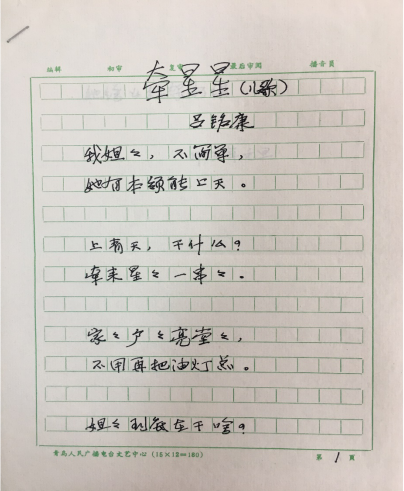 编辑 初审 复审 最后审阅 播音员
牵星星(儿歌)
吕铭康
我姐々，不简单，
她有本领能上天。
上青天，干什么？
牵来星々一串々。
家々户々亮堂々，
不用再把油灯点。
姐々到底在干啥？
青岛人民广播电台文艺中心(15×12=180) 第 1 页